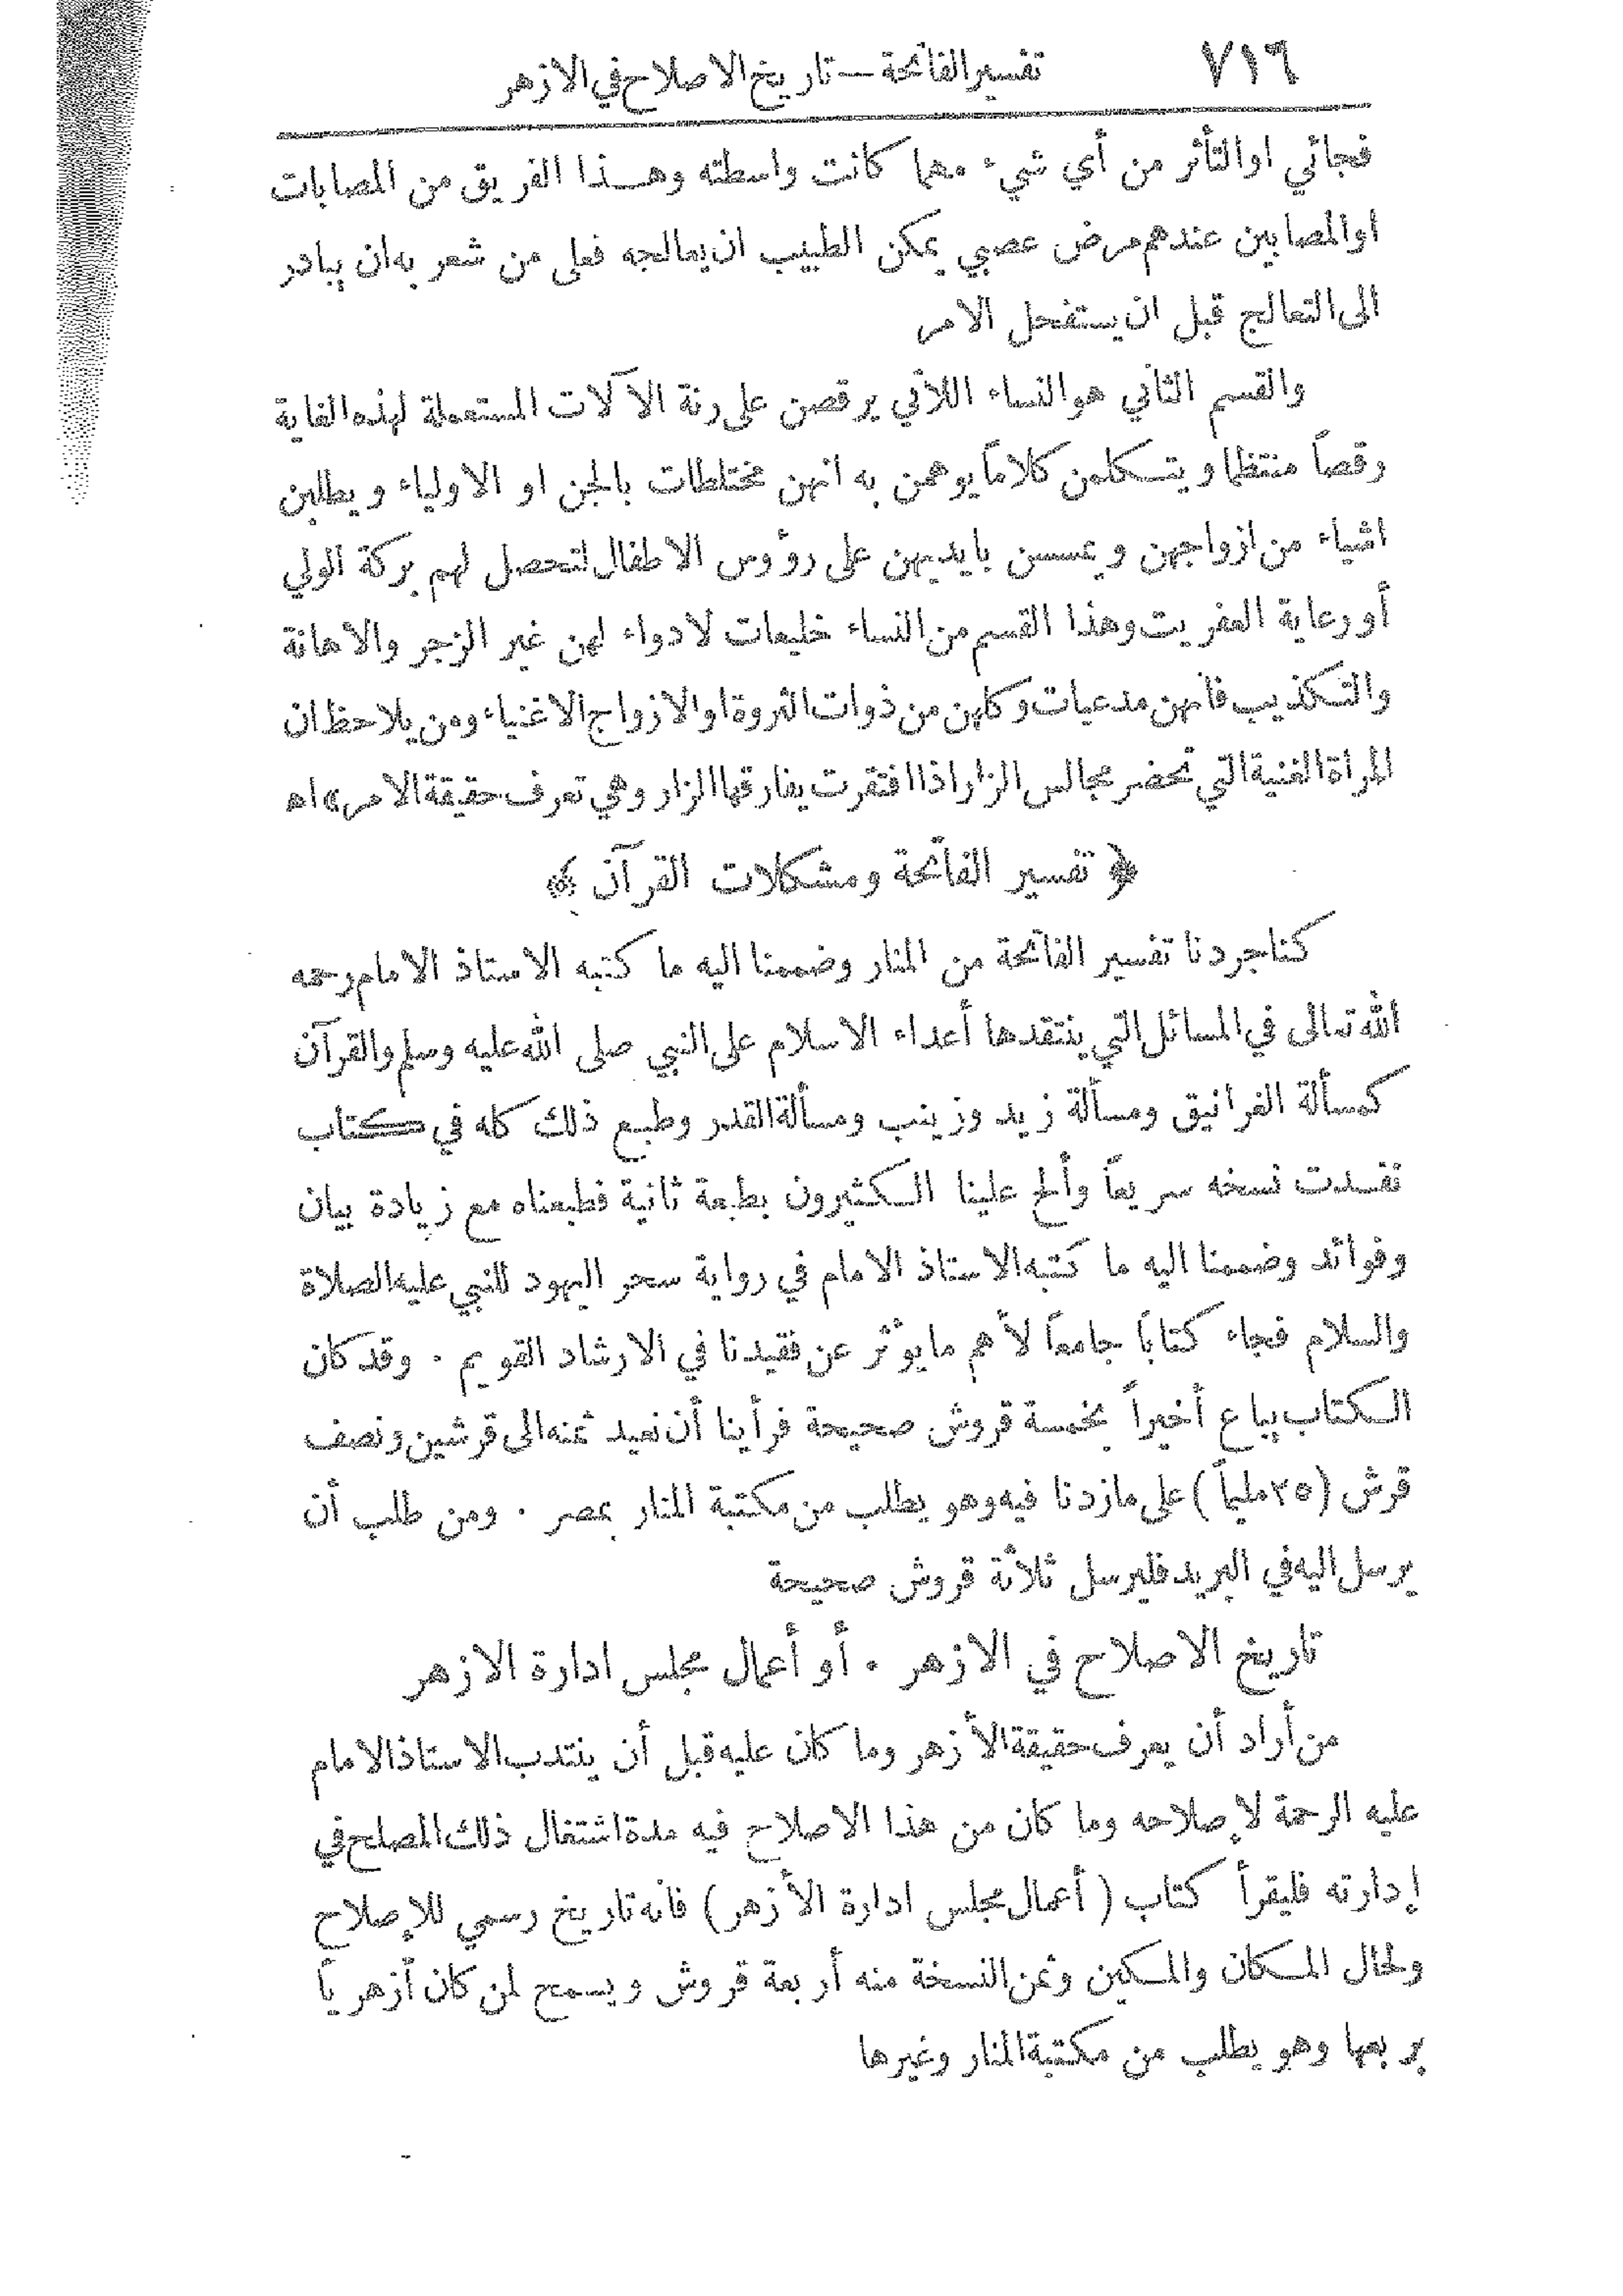 ٧١٦ تفسير الفاتحة — تاريخ الاصلاح في الازهر
فجائي او التأثر من أي شيء مهما كانت واسطته وهذا الفريق من المصابات
او المصابين عندهم مرض عصبي يمكن الطبيب ان يعالجه فعلى من شعر به ان يبادر
الى التعالج قبل ان يستفحل الامر
والقسم الثاني هو النساء اللاتي يرقصن على رنة الآلات المستعملة لهذه الغاية
رقصاً منتظما ويتكلمن كلاماً يوهمن به انهن مختلطات بالجن او الاولياء ويطلبن
اشياء من ازواجهن ويمسسن بايديهن على رؤوس الاطفال لتحصل لهم بركة الولي
أو رعاية العفريت وهذا القسم من النساء خليعات لا دواء لهن غير الزجر والاهانة
والتكذيب فانهن مدعيات وكلهن من ذوات الثروة او الازواج الاغنياء ومن يلاحظ ان
المراة الغنية التي تحضر مجالس الزار اذا افتقرت يفارقها الزار وهي تعرف حقيقة الامر» اه
﴿ تفسير الفاتحة ومشكلات القرآن ﴾
كنا جردنا تفسير الفاتحة من المنار وضممنا اليه ما كتبه الاستاذ الامام رحمه
الله تعالى في المسائل التي ينتقدها أعداء الاسلام على النبي صلى الله عليه وسلم والقرآن
كمسألة الغرانيق ومسألة زيد وزينب ومسألة القدر وطبع ذلك كله في كتاب
نفدت نسخه سريعاً وألح علينا الكثيرون بطبعة ثانية فطبعناه مع زيادة بيان
وفوائد وضممنا اليه ما كتبه الاستاذ الامام في رواية سحر اليهود للنبي عليه الصلاة
والسلام فجاء كتاباً جامعاً لأهم ما يؤثر عن فقيدنا في الارشاد القويم . وقد كان
الكتاب يباع أخيراً بخمسة قروش صحيحة فرأينا أن نعيد ثمنه الى قرشين ونصف
قرش (٢٥ مليماً) على ما زدنا فيه وهو يطلب من مكتبة المنار بمصر . ومن طلب أن
يرسل اليه في البريد فليرسل ثلاثة قروش صحيحة
تاريخ الاصلاح في الازهر . أو أعمال مجلس ادارة الازهر
من أراد أن يعرف حقيقة الأزهر وما كان عليه قبل أن ينتدب الاستاذ الامام
عليه الرحمة لإصلاحه وما كان من هذا الاصلاح فيه مدة اشتغال ذلك المصلح في
إدارته فليقرأ كتاب ( أعمال مجلس ادارة الأزهر ) فانه تاريخ رسمي للإصلاح
ولحال المكان والمكين وثمن النسخة منه أربعة قروش ويسمح لمن كان أزهرياً
بربعها وهو يطلب من مكتبة المنار وغيرها